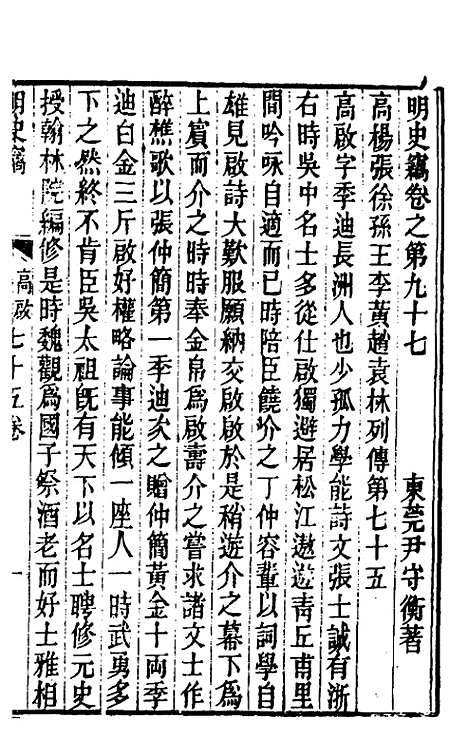 明史竊卷之第九十七
東莞尹守衡著
高楊張徐孫王李黃趙袁林列傳第七十五
高啟字季迪長洲人也少孤力學能詩文張士誠有浙
右時吳中名士多從仕啟獨避居松江遨遊青丘甫里
間吟咏自適而已時陪臣饒介之丁仲容輩以詞學自
雄見啟詩大歎服願納交啟啟於是稍遊介之幕下為
上賓而介之時時奉金帛為啟壽介之嘗求諸文士作
醉樵歌以張仲簡第一季迪次之贈仲簡黃金十兩季
迪白金三斤啟好權略論事能傾一座人一時武勇多
下之然終不肯臣吳太祖既有天下以名士聘修元史
授翰林院編修是時魏觀為國子祭酒老而好士雅相
明史竊
高啟七十五卷
一